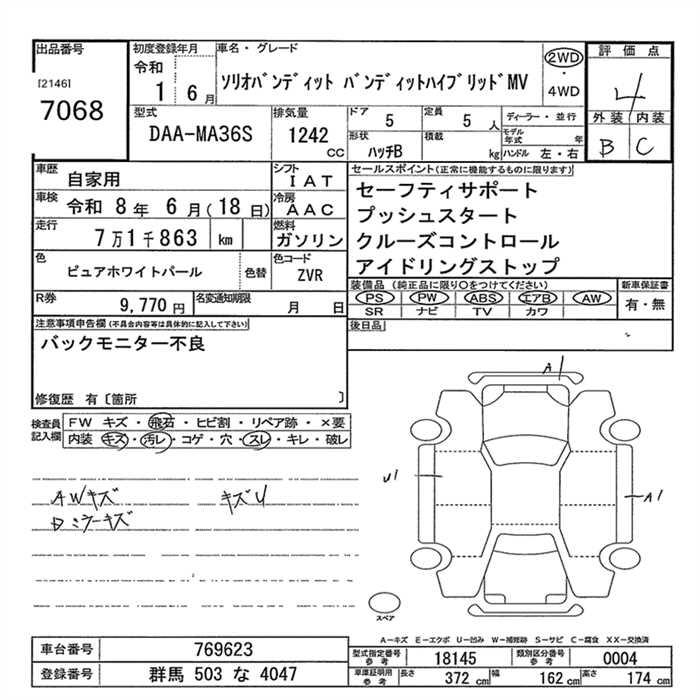 出品番号
[2146]
7068
初度登録年月
令和
1 6月
車名・グレード
ソリオバンディット バンディットハイブリッドMV
2WD
・
4WD
評価点
4
外装 内装
B C
型式
DAA-MA36S
排気量
1242
cc
ドア
5
定員
5 人
形状
ハッチB
積載
kg
ディーラー・並行
モデル年式 年
ハンドル 左・右
車歴
自家用
車検
令和 8年 6月(18日)
走行
7万1千863 km
シフト
IAT
冷房
AAC
燃料
ガソリン
色
ピュアホワイトパール
色替
色コード
ZVR
R券
9,770円
名変通知期限
月 日
セールスポイント(正常に機能するものに限ります)
セーフティサポート
プッシュスタート
クルーズコントロール
アイドリングストップ
装備品 (純正品に限り○をつけてください)
PS PW ABS エアB AW
SR ナビ TV カワ
新車保証書
有・無
後日品
注意事項申告欄(不具合内容等は具体的に記入して下さい)
バックモニター不良
修復歴 有〔箇所 〕
検査員記入欄
FW キズ・飛石・ヒビ割・リペア跡・×要
内装 キズ・汚レ・コゲ・穴・スレ・キレ・破レ
AWキズ キズU
Dミラーキズ
A1
U1
A1
スペア
A-キズ E-エクボ U-凹み W-補修跡 S-サビ C-腐食 XX-交換済
車台番号
769623
登録番号
群馬 503 な 4047
型式指定番号
参考
18145
類別区分番号
参考
0004
車庫証明用
参考
長さ 372 cm
幅 162 cm
高さ 174 cm